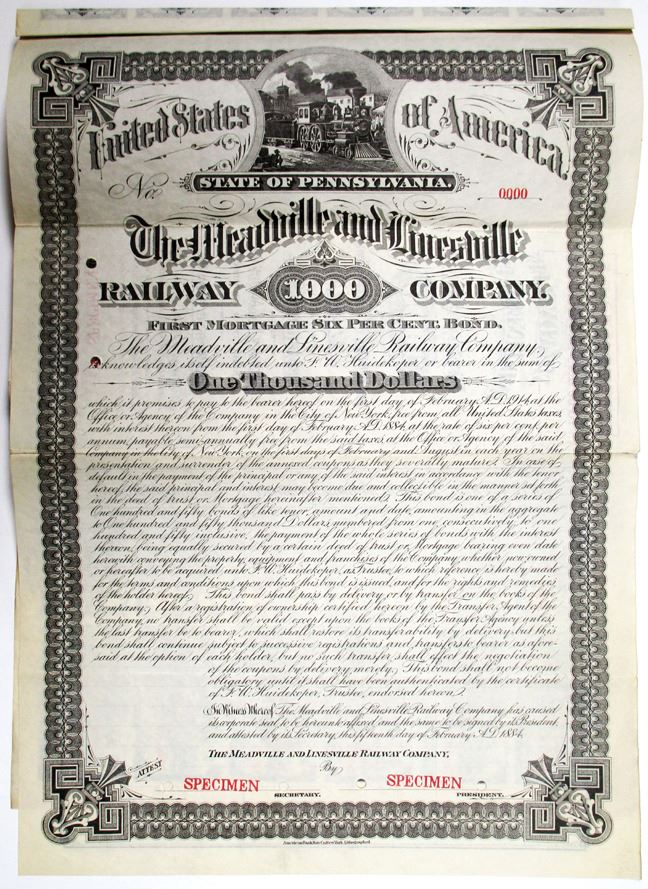 United States of America.
STATE OF PENNSYLVANIA.
No.
0000
The Meadville and Linesville
RAILWAY 1000 COMPANY.
FIRST MORTGAGE SIX PER CENT. BOND.
The Meadville and Linesville Railway Company,
Acknowledges itself indebted unto F. W. Huidekoper or bearer in the sum of
One Thousand Dollars
which it promises to pay to the bearer hereof on the first day of February A.D. 1914, at the
Office or Agency of the Company in the City of New York, free from all United States taxes,
with interest thereon from the first day of February A.D. 1884, at the rate of six per cent. per
annum, payable semi-annually, free from the said taxes, at the Office or Agency of the said
Company in the City of New York, on the first days of February and August in each year on the
presentation and surrender of the annexed coupons as they severally mature. In case of
default in the payment of the principal or any of the said interest in accordance with the tenor
hereof, the said principal and interest may become due and collectible in the manner set forth
in the deed of trust or Mortgage hereinafter mentioned. This bond is one of a series of
One hundred and fifty bonds of like tenor, amount and date, amounting in the aggregate
to One hundred and fifty thousand Dollars numbered from one, consecutively, to one
hundred and fifty inclusive, the payment of the whole series of bonds with the interest
thereon, being equally secured by a certain deed of trust or Mortgage bearing even date
herewith conveying the property, equipment and franchises of the Company, whether now owned
or hereafter to be acquired unto F. W. Huidekoper, as Trustee, to which reference is hereby made
for the terms and conditions upon which this bond is issued, and for the rights and remedies
of the holder hereof. This bond shall pass by delivery or by transfer on the books of the
Company. After a registration of ownership certified hereon by the Transfer Agent of the
Company, no transfer shall be valid except upon the books of the Transfer Agency unless
the last transfer be to bearer, which shall restore its transferability by delivery, but this
bond shall continue subject to successive registrations and transfers to bearer as afore-
said at the option of each holder, but no such transfer shall effect the negotiation
of the coupons by delivery merely. This bond shall not become
obligatory until it shall have been authenticated by the certificate
of F. W. Huidekoper, Trustee, endorsed hereon.
In Witness Whereof The Meadville and Linesville Railway Company has caused
its corporate seal to be hereunto affixed, and the same to be signed by its President
and attested by its Secretary, this fifteenth day of February A.D. 1884.
THE MEADVILLE AND LINESVILLE RAILWAY COMPANY,
By
ATTEST
SPECIMEN SPECIMEN
SECRETARY. PRESIDENT.